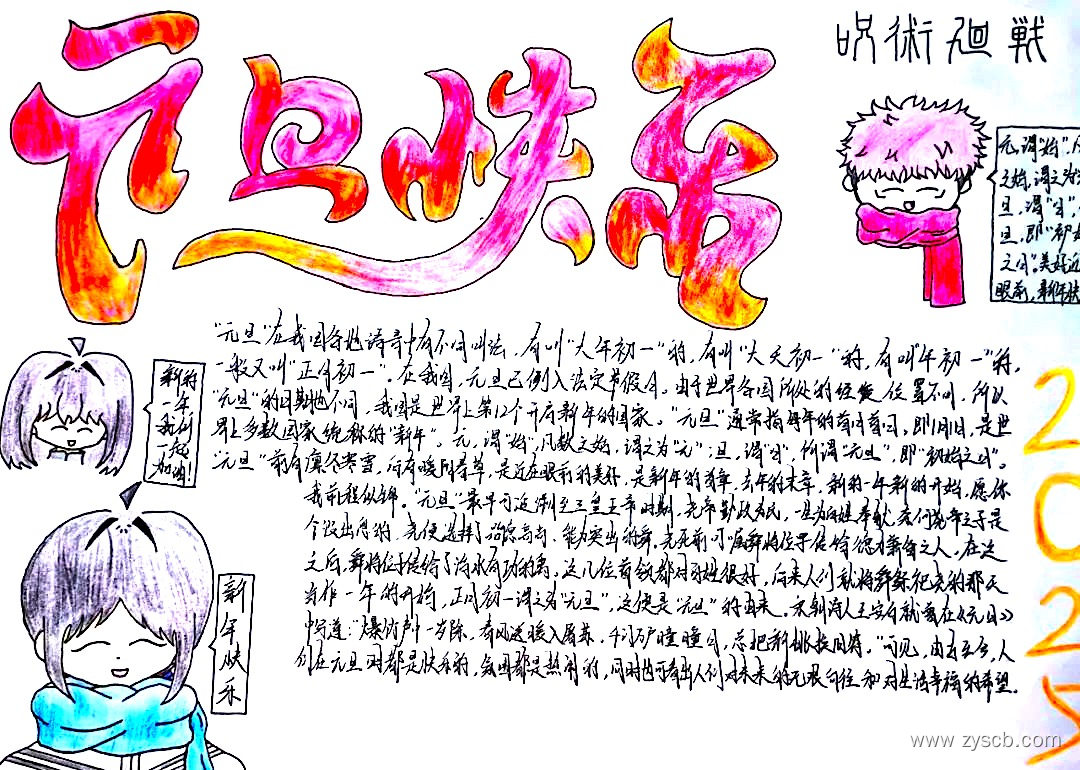 元旦快乐
呪術廻戦
元,谓"始",凡
之始,谓之为
旦,谓"日",
旦,即"初始
之日".美好近
眼前,新年快
"元旦"在我国各地语言中有不同叫法,有叫"大年初一"的,有叫"大天初一"的,有叫"年初一"的,
一般又叫"正月初一".在我国,元旦已例入法定节假日.由于世界各国所处的经度位置不同,所以
"元旦"的日期也不同,我国是世界上第12个开启新年的国家."元旦"通常指每年的首月首日,即1月1日,是世
界上多数国家统称的"新年".元,谓"始",凡数之始,谓之为"元";旦,谓"日",所谓"元旦",即"初始之日".
"元旦"前有凛冬寒雪,后有暖阳春草,是近在眼前的美好,是新年的首章,去年的末章,新的一年新的开始,愿你
我前程似锦."元旦"最早可追
能力突出的舜,
之后,舜将位子传给了治水有功的禹,这几位首领都对百姓很好,后来人们就将舜祭祀尧的那天
当作一年的开始,正月初一谓之为"元旦",这便是"元旦"的由来.宋朝诗人王安石就曾在《元日》
中写道:"爆竹声中一岁除,春风送暖入屠苏,千门万户曈曈日,总把新桃换旧符."可见,由古至今,人
们在元旦时都是快乐的,氛围都是热闹的,同时也可看出人们对未来的无限向往和对生活幸福的希望.
新的
一年
我们
一起
加油!
新年快乐
2025
www.zyscb.com